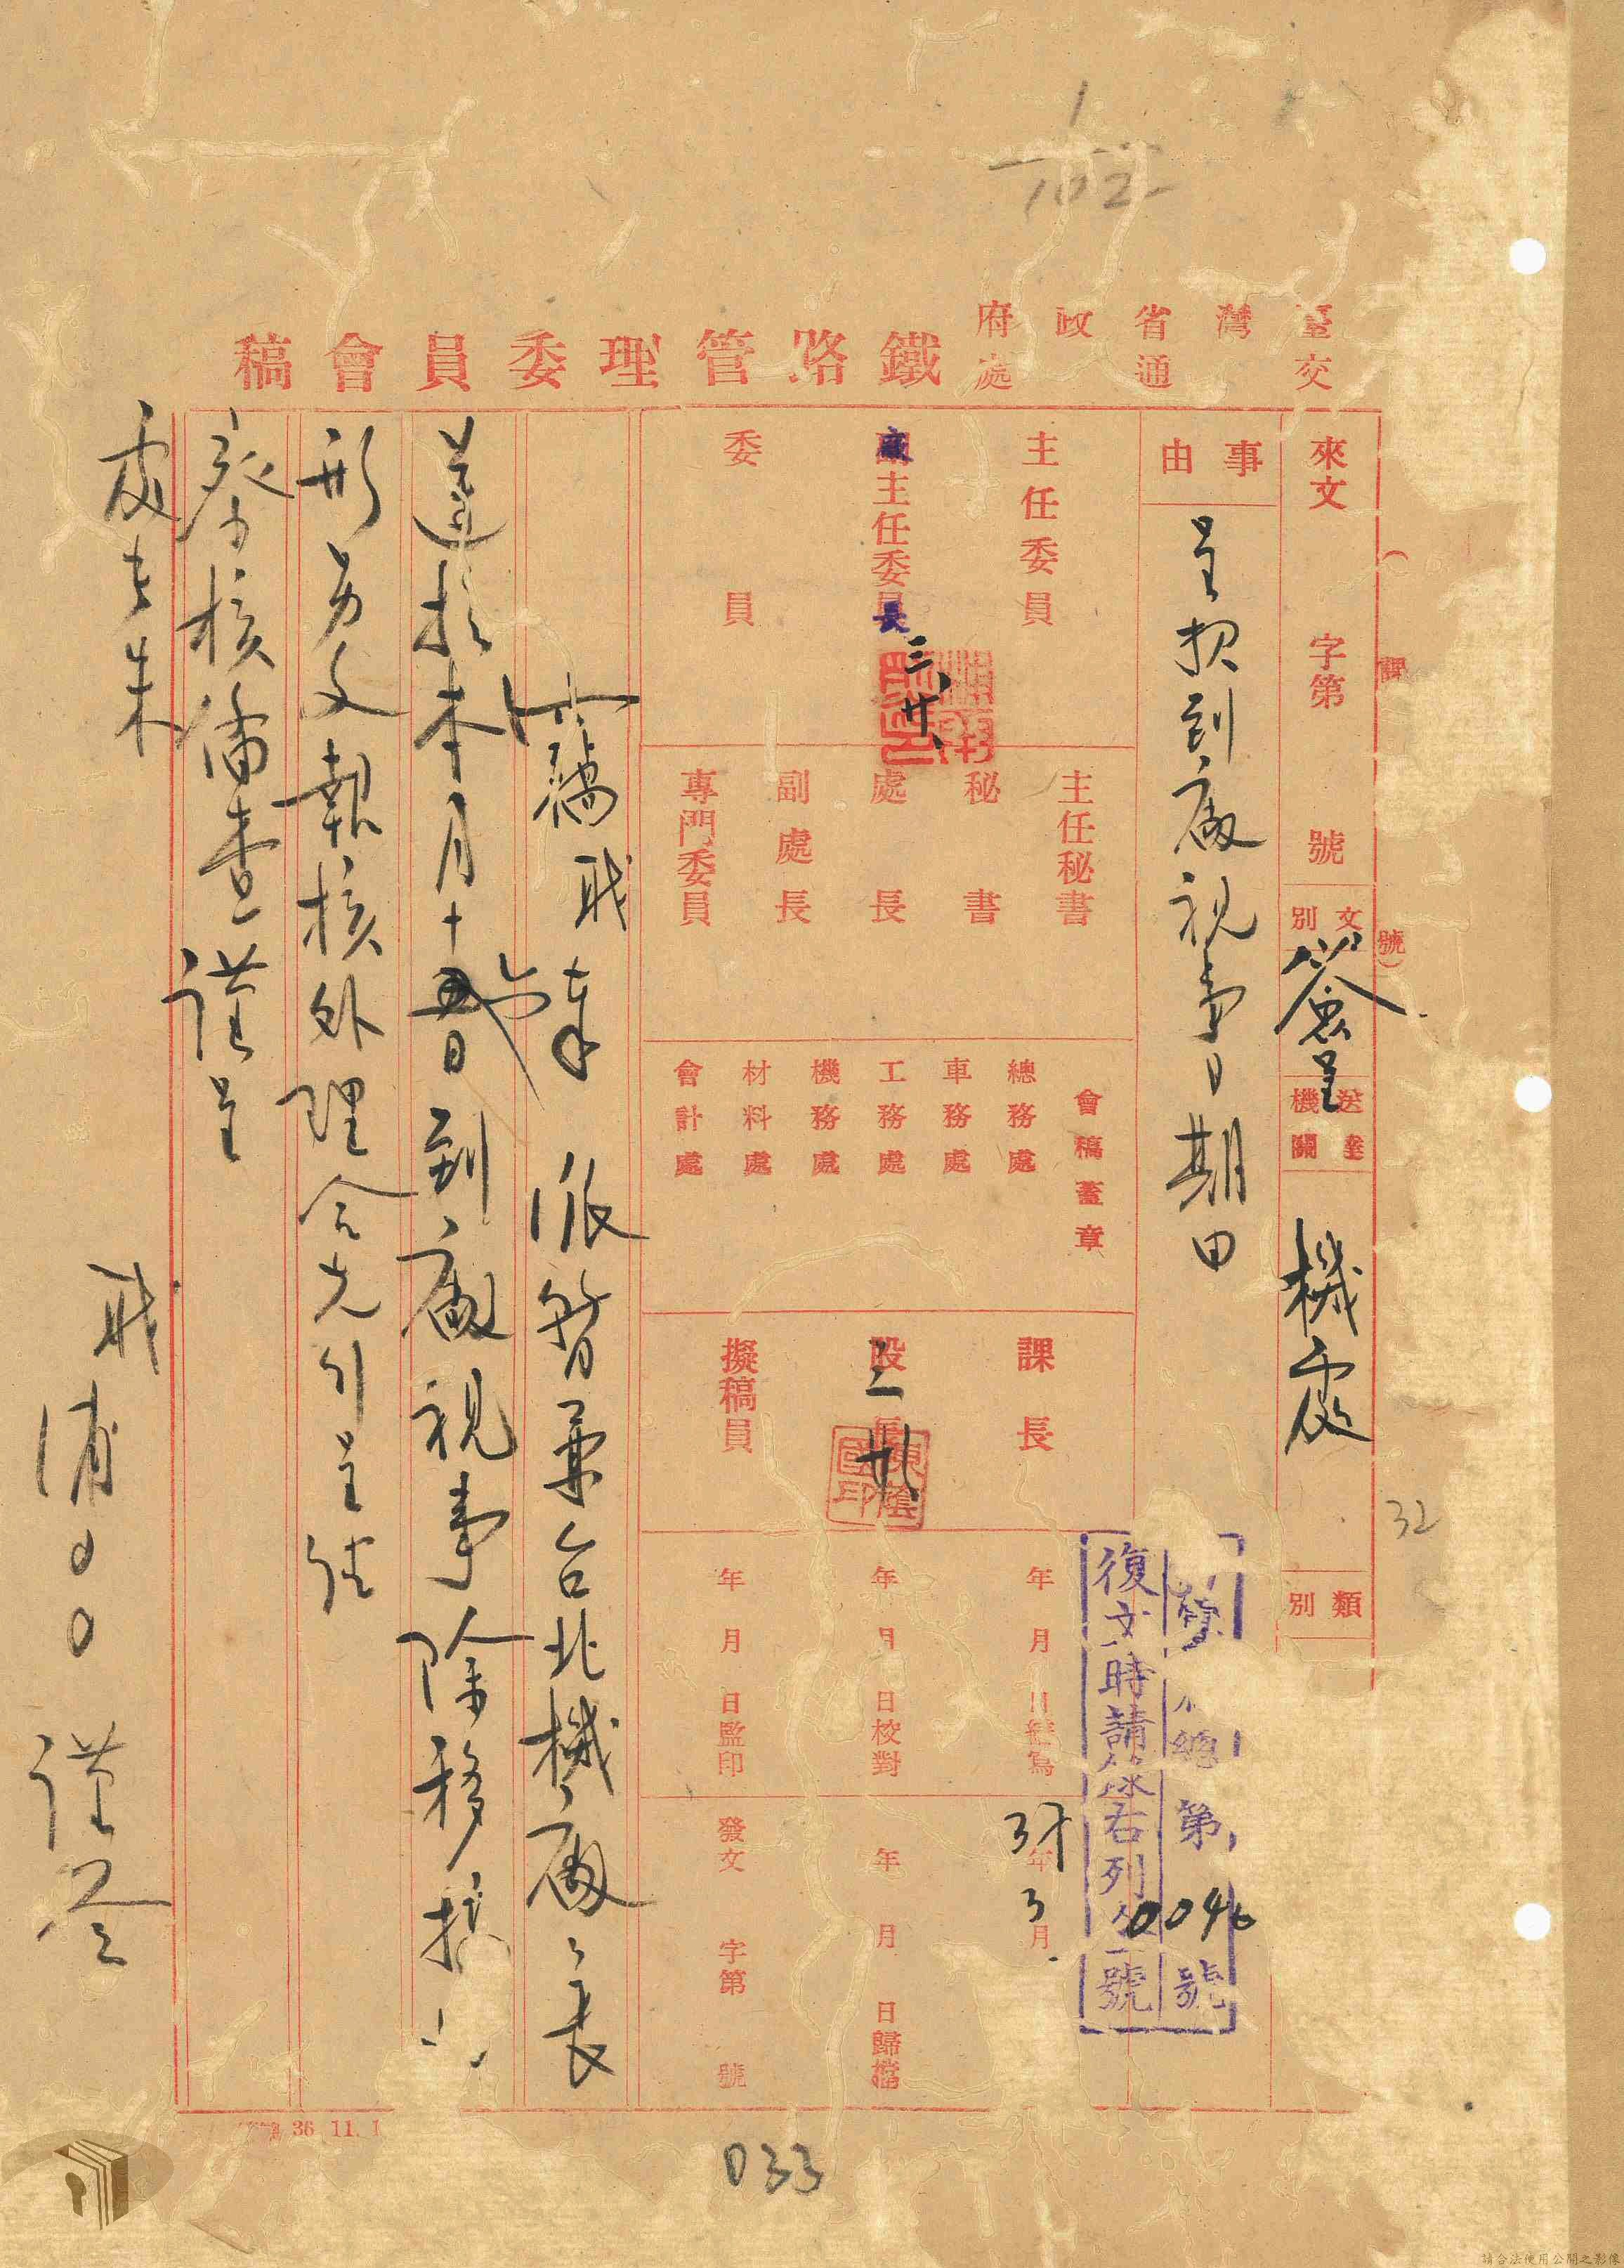 1
102
臺灣省政府
交通處
鐵路管理委員會稿
(課號)
來文 字第 號
文別 簽呈
送達機關 機處
類別
事由 呈報到廠視事日期由
32
復文時請 右列 號
總 第0046號
主任委員
廠主任委員長 三、廿、
委員
主任秘書
秘書
處長
副處長
專門委員
會稿蓋章
總務處
車務處
工務處
機務處
材料處
會計處
課長
股長 三 廿
陳蔭國印
擬稿員
年月日繕寫
年月日校對
年月日監印
37年3月
年月日歸檔
發文 字第 號
竊職奉 派暫兼台北機廠廠長
遵於本月十六日到廠視事除移接
形另文報核外理合先行呈請
察核備查謹呈
處長朱
職 謹簽
36.11.1
033
請合法使用公開之影像